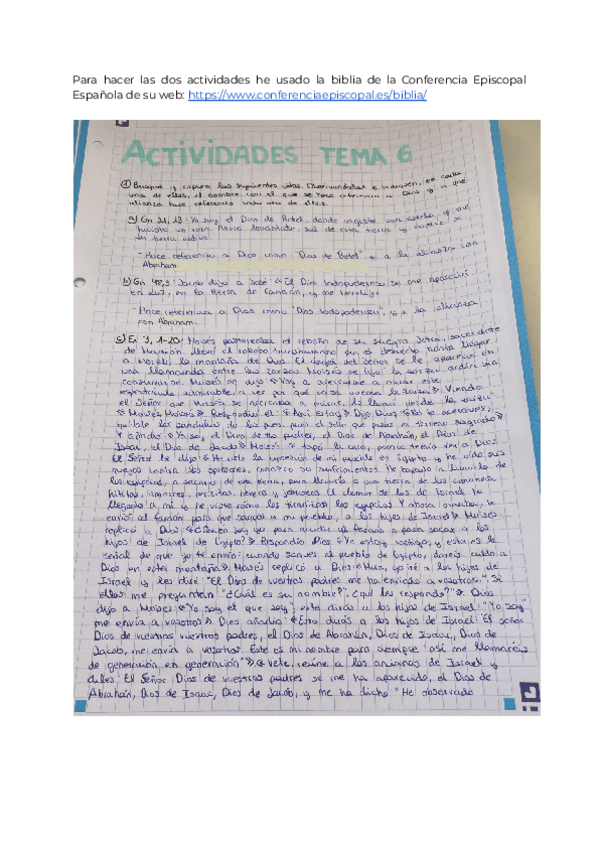 Para hacer las dos actividades he usado la biblia de la Conferencia Episcopal
Española de su web: https://www.conferenciaepiscopal.es/biblia/
ACTIVIDADES TEMA 6
① Busque y copiara las siguientes citas. e indiquen, en cada
una de ellas, el nombre con el que se hace referencia a Dios y a qué
alianza hace referencia cada una de ellas.
a) Gn 31, 13: Yo soy el Dios de Betel, donde ungiste una estela y me
hiciste un voto. Ahora levántate, sal de esta tierra y vuelve a
tu tierra nativa
- Hace referencia a Dios como "Dios de Betel" y a la alianza con
Abraham
b) Gn 48,3: Jacob dijo a José: «El Dios todopoderoso se me apareció
en Luz, en la tierra de Canaán, y me bendijo»
- Hace referencia a Dios como "Dios todopoderoso", y a la alianza
con Abraham.
c) Ex 3, 1-20: Moisés pastoreaba el rebaño de su suegro Jetró, sacerdote
de Llevó el rebaño trashumando por el desierto hasta llegar
a Horeb, la montaña de Dios. El ángel del Señor se le apareció en
una llamarada entre las zarzas. Moisés se fijó: la zarza ardía sin
consumirse. Moisés se dijo: «Voy a acercarme a mirar este
espectáculo admirable, a ver por qué no se quema la zarza». Viendo
el Señor que Moisés se acercaba a mirar, lo llamó desde la zarza:
«Moisés, Moisés». Respondió él: «Aquí estoy». Dijo Dios: «No te acerques,
quítate las sandalias de los pies, pues el sitio que pisas es terreno sagrado»
Y añadió: «Yo soy el Dios de tus padres, el Dios de Abrahán, el Dios de
Isaac, el Dios de Jacob». Moisés se tapó la cara, porque temía ver a Dios.
El Señor le dijo: «He visto la opresión de mi pueblo en Egipto y he oído sus
quejas contra los opresores, conozco sus sufrimientos. He bajado a librarlo de
los egipcios, a sacarlo de esta tierra, para llevarlo a una tierra de los cananeos,
hititas, amorreos, perizitas, heveos y jebuseos. El clamor de los de Israel ha
llegado a mí y he visto cómo los tiranizan los egipcios. Y ahora marcha, te
envío al faraón para que saques a mi pueblo, a los hijos de Israel». Moisés
replicó a Dios: «¿Quién soy yo para acudir al faraón o para sacar a los
hijos de Israel de Egipto?». Respondió Dios: «Yo estoy contigo; y esta es la
señal de que yo te envío: cuando saques al pueblo de Egipto, daréis culto a
Dios en esta montaña». Moisés replicó a Dios: «Mira, yo iré a los hijos de
Israel y les diré: "El Dios de vuestros padres me ha enviado a vosotros." Si
ellos me preguntan: "¿Cuál es su nombre?", ¿qué les respondo?». Dios
dijo a Moisés: «"Yo soy el que soy"; esto dirás a los hijos de Israel: "Yo soy"
me envía a vosotros». Dios añadió: «Esto dirás a los hijos de Israel: El señor
Dios de vuestros padres, el Dios de Abrahán, Dios de Isaac, Dios de
Jacob, me envía a vosotros. Este es mi nombre para siempre: así me llamaréis
de generación en generación"». «Vete, reúne a los ancianos de Israel y
diles: El Señor Dios de vuestros padres se me ha aparecido, el Dios de
Abrahán, Dios de Isaac, Dios de Jacob, y me ha dicho: "He observado